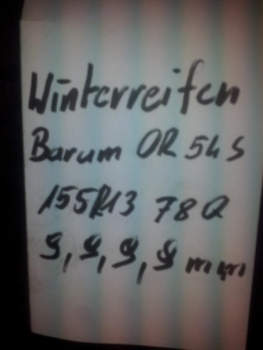 Winterreifen
Barum OR 54 S
155R13 78Q
9, 9, 9, 9 mm